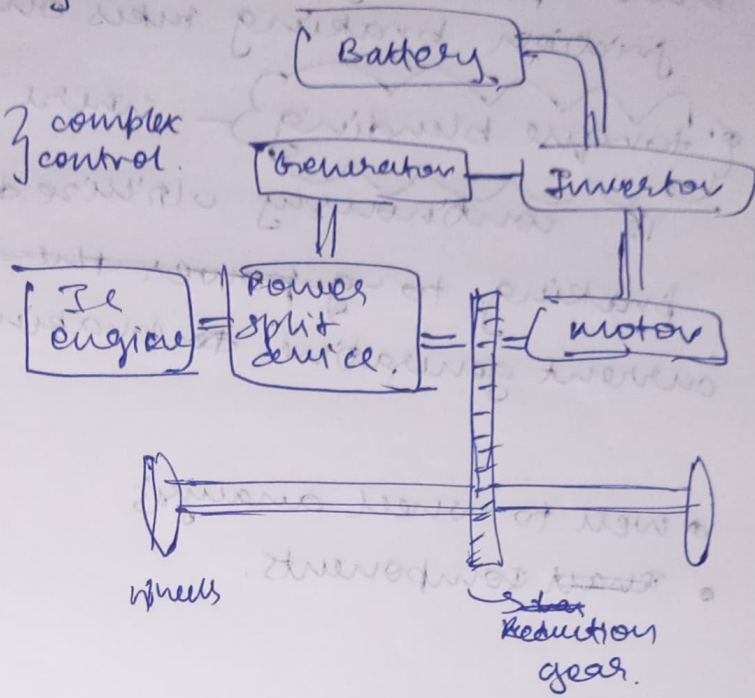 Battery
} complex
control.
Generator
Invertor
Ic
engine
Power
split
device.
motor
wheels
Reduction
gear.